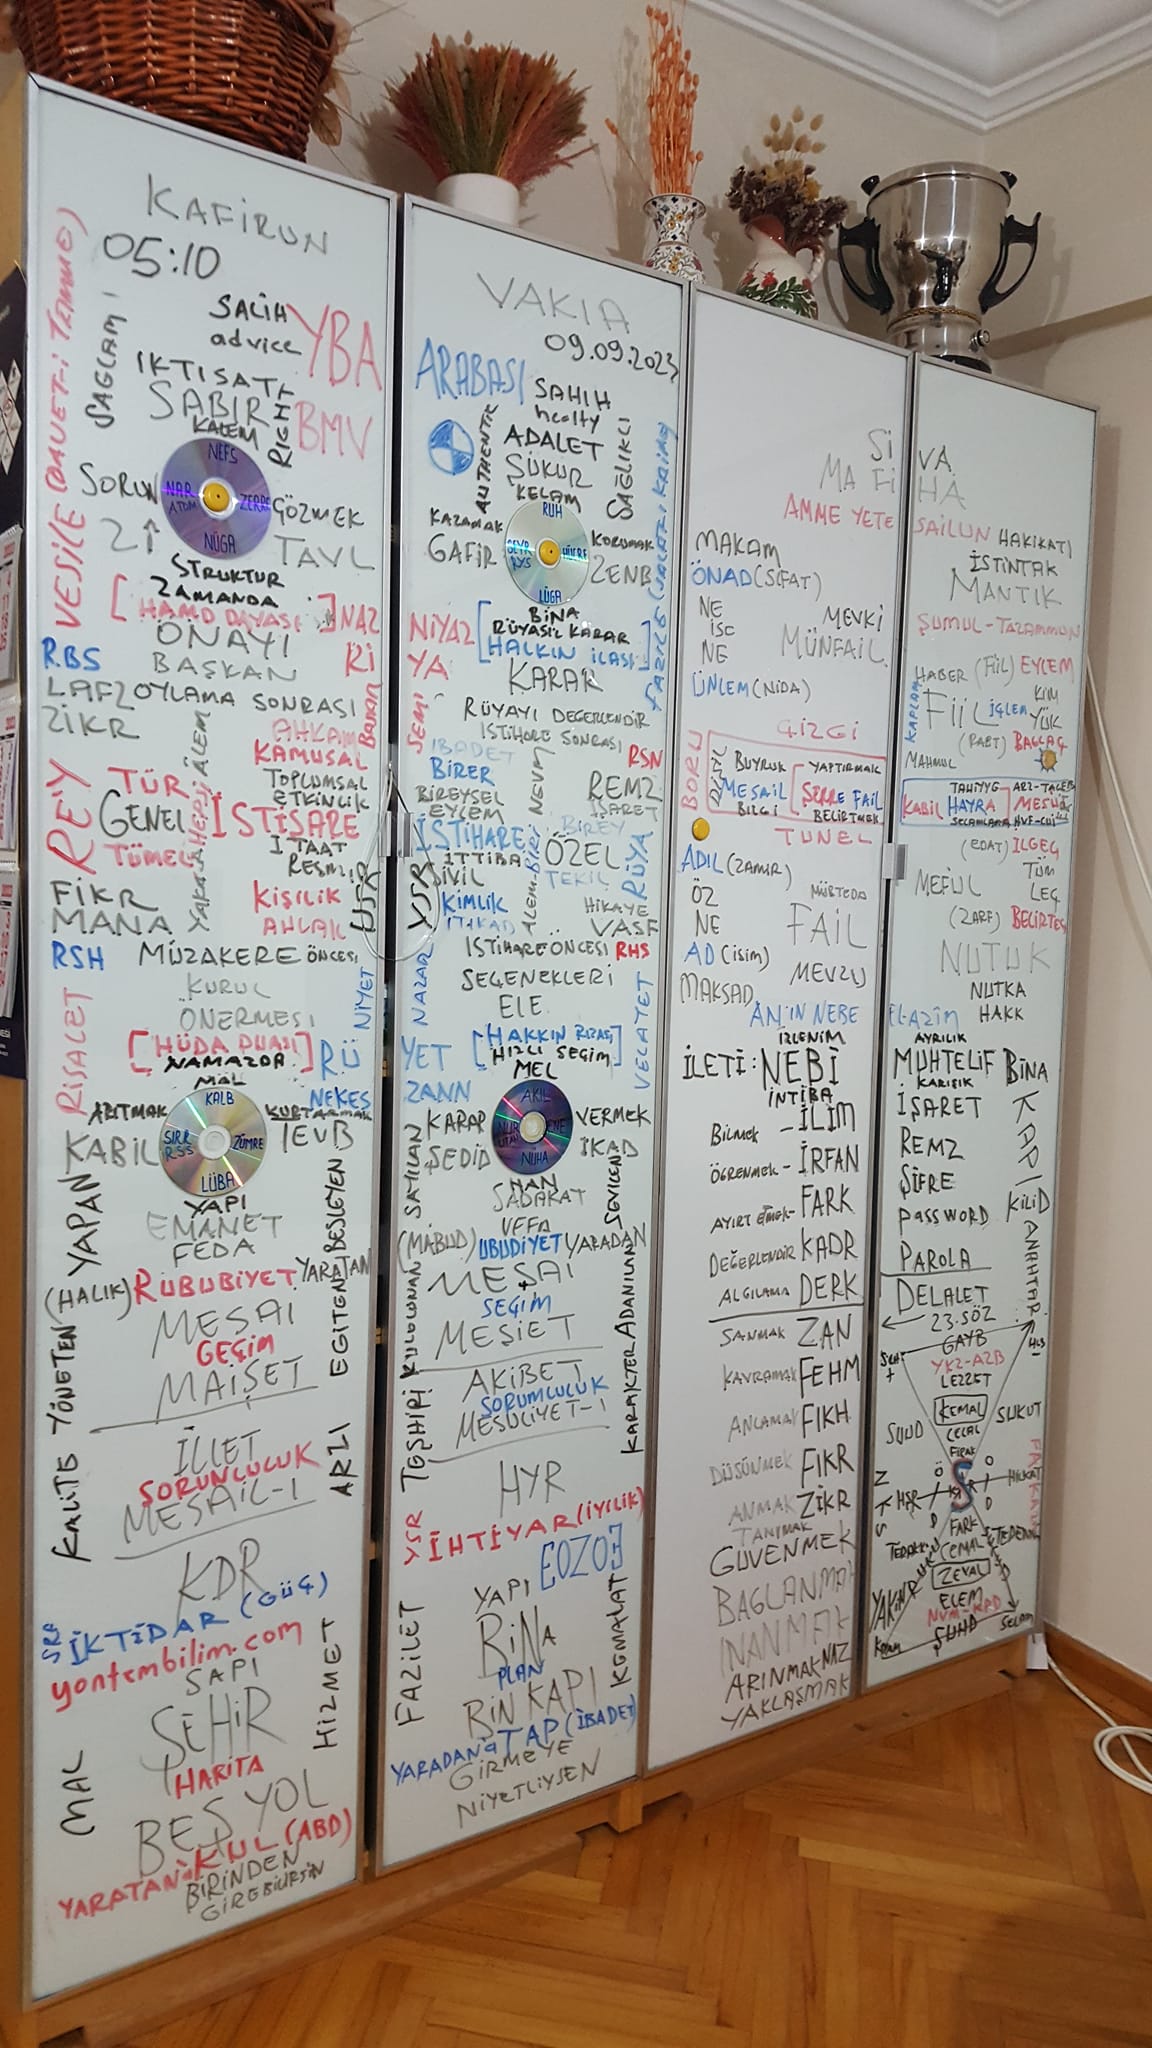 KAFİRUN
05:10
VESİLE (DAVET-İ TAMME)
SAĞLAMI
SALİH
advice
YBA
İKTİSAT
SABIR
KALEM
RIGHT
BMV
NEFS
SORUN
NAR
ATOM
ZERRE
GÖZMEK
NÜGA
TAVL
STRUKTUR
ZAMANDA
[HAMD DAVASI]
NAZ
ÖNAYI
RBS
BAŞKAN
Rİ
LAFZ
OYLAMA SONRASI
ZİKR
AHKAM
KAMUSAL
REY
TÜR
TOPLUMSAL
ETKİNLİK
GENEL
İSTİŞARE
TÜMEL
İTAAT
RESMİ
FİKR
KİŞİLİK
MANA
AHLAK
RSH
MÜZAKERE ÖNCESİ
KURUL
ÖNERMESİ
NİYET
RİSALET
[HÜDA DUASI]
NAMAZDA
RÜ
MAL
NEKES
ARITMAK
KALB
KURTARMAK
KABİL
SIRR
RSS
ZÜMRE
TEVB
LÜBA
YAPI
EMANET
FEDA
YAPAN
BESLEYEN
(HALIK) RUBUBİYET YARATAN
MESAİ
GEÇİM
MAİŞET
EGİTEN
KALİTE YÖNETEN
İLLET
SORUNLULUK
MESAİL-İ
ARZI
KDR
İKTİDAR (GÜÇ)
yontembilim.com
SAPI
ŞEHİR
HARİTA
HİZMET
MAL
BEŞ YOL
YARATAN'A KUL (ABD)
BİRİNDEN
GİREBİLİRSİN
VAKIA
09.09.2023
ARABASI
SAHIH
healty
AUTHENTIK
ADALET
ŞÜKÜR
KELAM
SAĞLIKLI
RUH
KAZAMAK
KORUMAK
GAFİR
HÜCRE
ZENB
LÜGA
BİNA
NİYAZ
[RÜYASI'L KARAR
HALKIN İLASI]
YA
KARAR
RÜYAYI DEGERLENDİR
İSTİHARE SONRASI
İBADET
RSN
BİRER
REMZ
BİREYSEL
EYLEM
İŞARET
NEVM
İSTİHARE
BİREY
İTTİBA
ÖZEL
SİVİL
TEKİL
RÜYA
KİMLİK
HİKAYE
İTİKAD
VASF
İSTİHARE ÖNCESİ RHS
SEÇENEKLERİ
ELE
NAZAR
VELAYET
YET
[HAKKIN RIZASI
HIZLI SEÇİM]
MEL
ZANN
AKIL
KARAR
VERMEK
ŞEDİD
NUR
ENE
İKAD
NUHA
NAN
SADAKAT
VEFA
SAYILAN
SEVİLEN
(MABUD) UBUDİYET YARADAN
MEŞAİ
SEÇİM
MEŞİET
KULLUNAN
AKİBET
SORUMLULUK
MESULİYET-İ
TEŞHİRİ
KARAKTER ADANILAN
HYR
YSR
İHTİYAR (İYİLİK)
EOZOE
YAPI
BİNA
PLAN
BİN KAPI
FAZİLET
KEMALAT
YARADAN'A TAP (İBADET)
GİRMEYE
NİYETLİYSEN
Sİ
MA Fİ
AMME YETE
MAKAM
ÖNAD (SIFAT)
NE
İSE
NE
MEVKİ
MÜNFAİL
ÜNLEM (NİDA)
ÇİZGİ
BORU
BUYRUK
MESAİL
BİLGİ
YAPTIRMAK
FAİL
BELİRTMEK
TUNEL
ADIL (ZAMİR)
ÖZ
NE
MÜBTEDA
FAİL
AD (isim)
MAKSAD
MEVZU
AN'IN NEBE
İZLENİM
İLETİ: NEBİ
İNTİBA
Bilmek - İLİM
ÖGRENMEK - İRFAN
AYIRT ETMEK - FARK
DEĞERLENDİR KADR
ALGILAMA DERK
SANMAK ZAN
KAVRAMAK FEHM
ANLAMAK FIKH
DÜŞÜNMEK FİKR
ANMAK ZİKR
TANIMAK
GÜVENMEK
BAGLANMAK
İNANMAK
ARINMAK NAZ
YAKLAŞMAK
VA
HA
SAİLUN HAKIKATI
İSTİNTAK
MANTIK
ŞUMUL-TAZAMMUN
HABER (FİİL) EYLEM
FİİL İŞLEM
KİM
YÜK
(RABT) BAGLAÇ
MAHMUL
KAPLAM
KABİL
HAYRA
SELAMLAMA
(EDAT) İLGEÇ
MEFUL
TÜM
LEÇ
(ZARF) BELİRTEÇ
NUTUK
NUTKA
HAKK
EL-AZİM
AYRILIK
MUHTELİF
KARIŞIK
BİNA
İŞARET
REMZ
ŞİFRE
PASSWORD
PAROLA
KAPI
KİLİD
ANAHTAR
DELALET
23.SÖZ
GAYB
LEZZET
KEMAL
CELAL
FİRAK
SUUD
SUKUT
HİLKAT
FARK
CEMAL
ZEVAL
ELEM
ŞUHD
SELAM